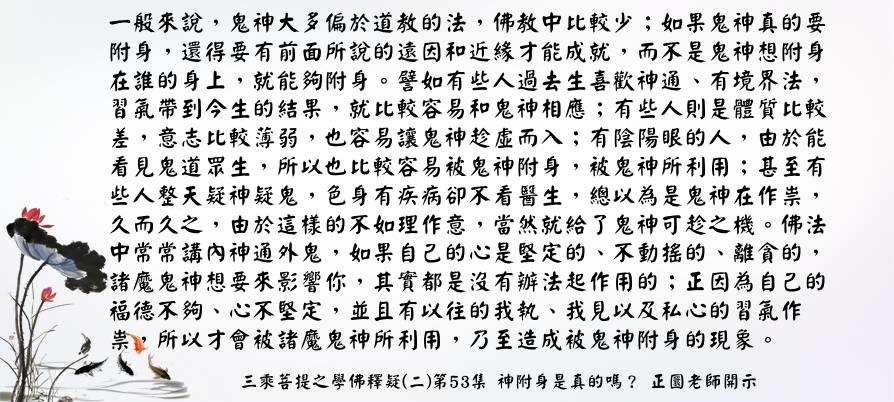 一般來說，鬼神大多偏於道教的法，佛教中比較少；如果鬼神真的要
附身，還得要有前面所說的遠因和近緣才能成就，而不是鬼神想附身
在誰的身上，就能夠附身。譬如有些人過去生喜歡神通、有境界法，
習氣帶到今生的結果，就比較容易和鬼神相應；有些人則是體質比較
差，意志比較薄弱，也容易讓鬼神趁虛而入；有陰陽眼的人，由於能
看見鬼道眾生，所以也比較容易被鬼神附身，被鬼神所利用；甚至有
些人整天疑神疑鬼，色身有疾病卻不看醫生，總以為是鬼神在作祟，
久而久之，由於這樣的不如理作意，當然就給了鬼神可趁之機。佛法
中常常講內神通外鬼，如果自己的心是堅定的、不動搖的、離貪的，
諸魔鬼神想要來影響你，其實都是沒有辦法起作用的；正因為自己的
福德不夠、心不堅定，並且有以往的我執、我見以及私心的習氣作
祟，所以才會被諸魔鬼神所利用，乃至造成被鬼神附身的現象。
三乘菩提之學佛釋疑(二)第53集 神附身是真的嗎？ 正圜老師開示